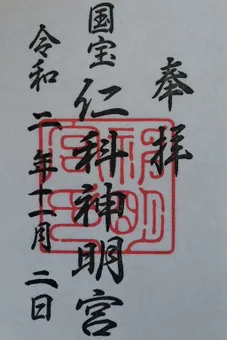 奉拝
国宝 仁科神明宮
令和二年十一月二日